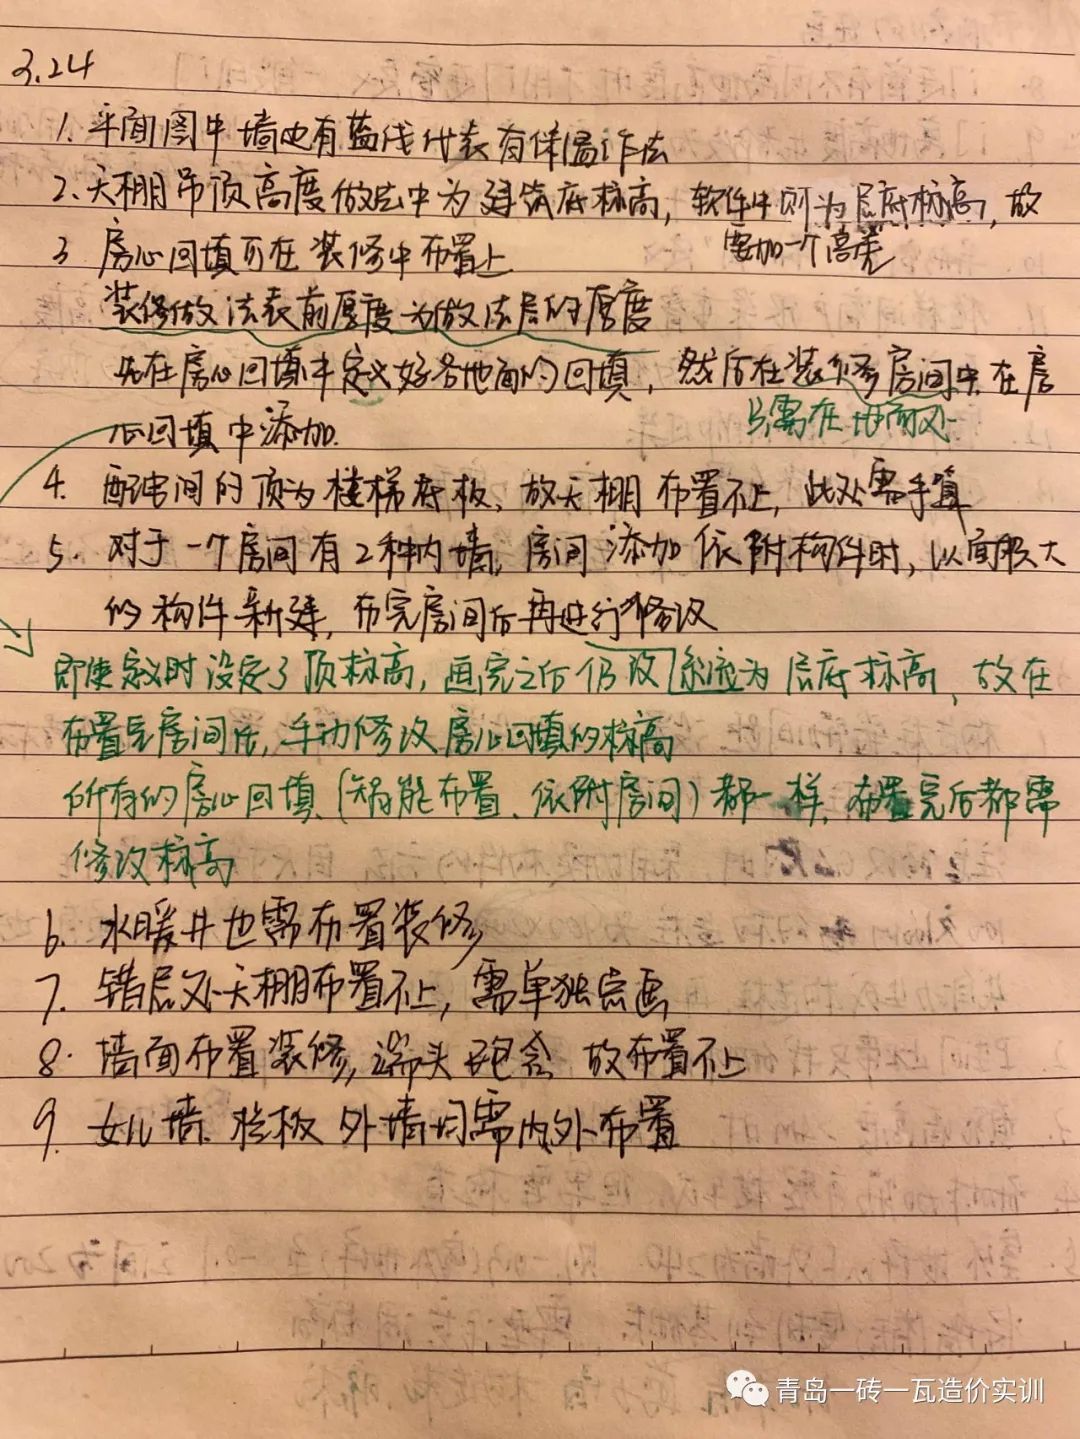 3.24
1. 平面图中墙边有蓝线代表有保温作法
2. 天棚吊顶高度做法中为建筑底标高，软件中则为层底标高，故
需加一个高差
3 房心回填可在装修中布置上
装修做法表前厚度为做法层的厚度
先在房心回填中定义好各地面的回填，然后在装修房间中在房
心回填中添加.
只需在地面处
4. 配电间的顶为楼梯底板、故天棚布置不上，此处需手算
5. 对于一个房间有2种内墙，房间添加依附构件时，以面积大
的构件新建，布完房间后再进行修改
即使定义时设定了顶标高，画完之后仍改 为层底标高，故在
布置完房间后，手动修改房心回填的标高
所有的房心回填（智能布置、依附房间）都一样，布置完后都需
修改标高
6. 水暖井也需布置装修
7. 错层处天棚布置不上，需单独点画
8. 墙面布置装修，端头 故布置不上
9. 女儿墙、栏板外墙均需内外布置
青岛一砖一瓦造价实训